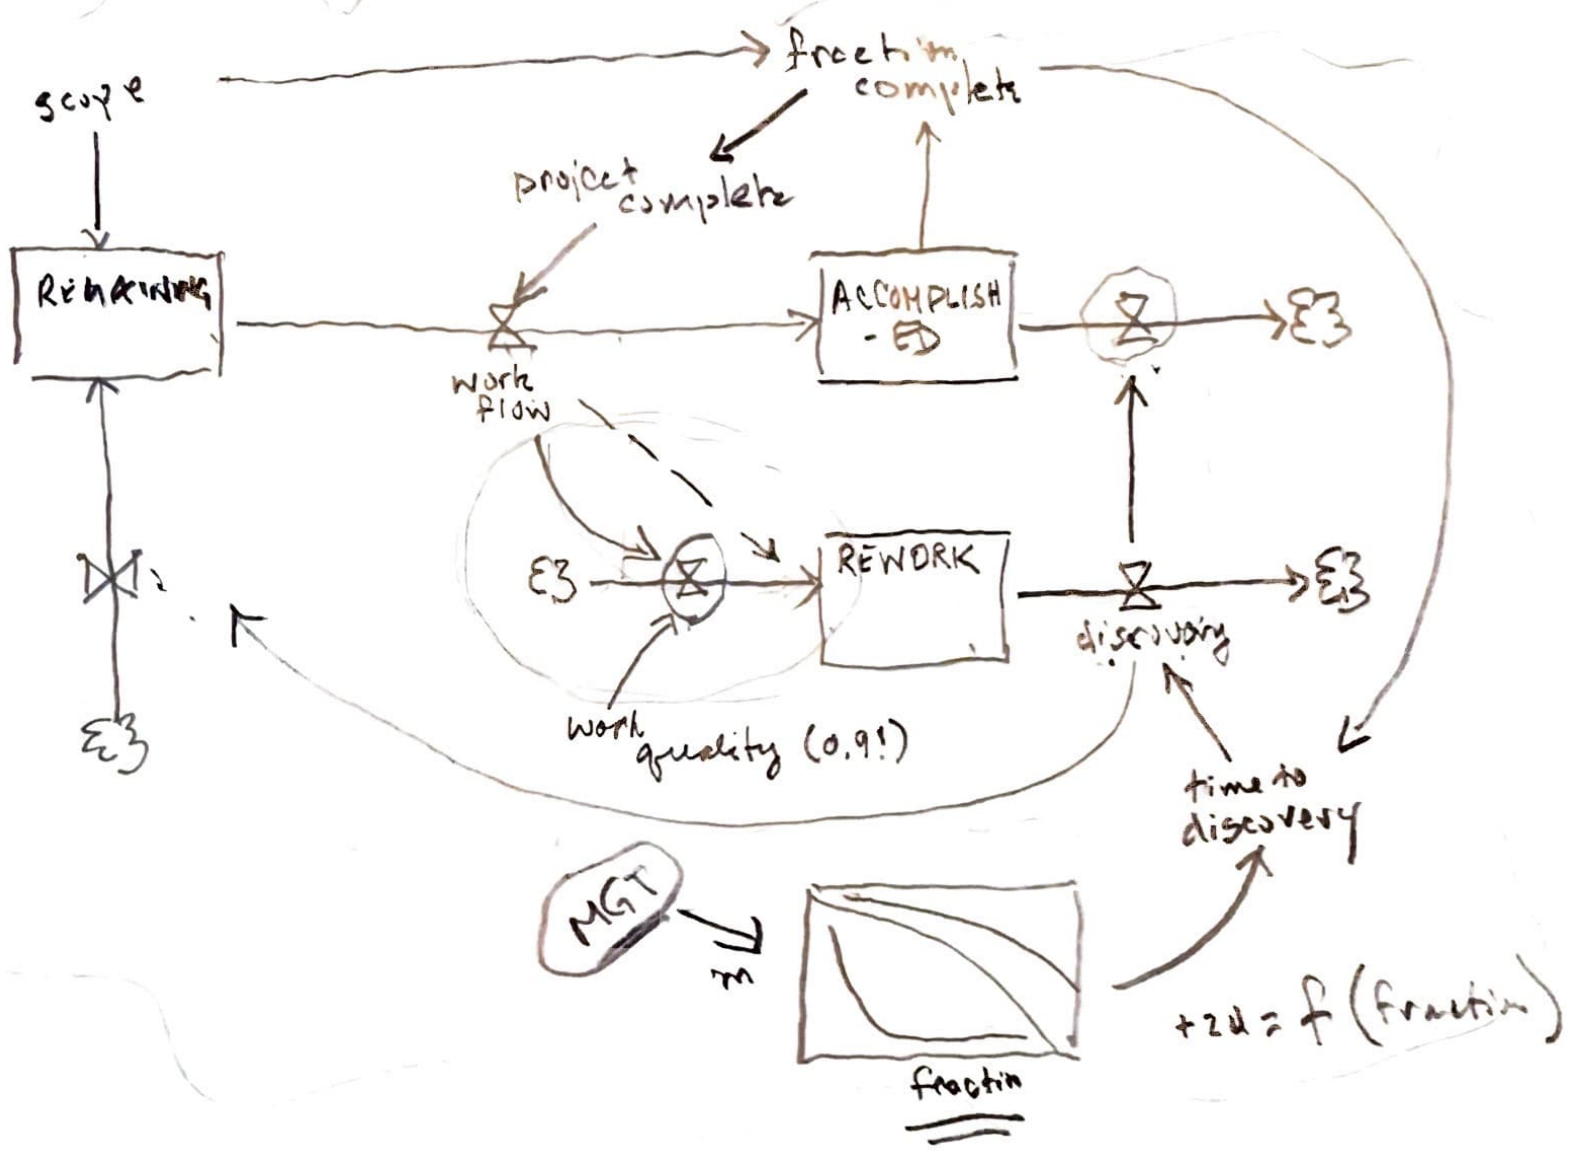 scope
fraction
complete
project
complete
REMAINING
ACCOMPLISH
-ED
work
flow
REWORK
discovery
work
quality (0.9!)
time to
discovery
MGT
m
t2d = f (fraction)
fractin